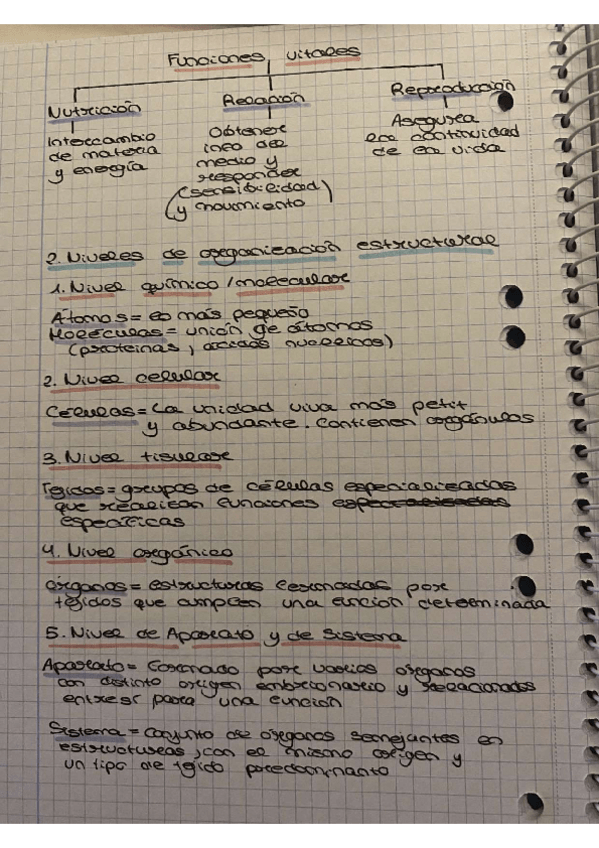 Funciones vitales
Nutrición
Relación
Reproducción
Intercambio
de materia
y energía
Obtener
info del
medio y
responder
(sensibilidad)
y movimiento
Asegura
la continuidad
de la vida
2. Niveles de organización estructural
1. Nivel químico / molecular
Átomos = lo más pequeño
Moléculas = unión de átomos
(proteínas, ácidos nucleicos)
2. Nivel celular
Células = La unidad viva más petit
y abundante. Contienen orgánulos
3. Nivel tisular
Tejidos = grupos de células especializadas
que realizan funciones especializadas
específicas
4. Nivel orgánico
órganos = estructuras formadas por
tejidos que cumplen una función determinada
5. Nivel de Aparato y de Sistema
Aparato = Formado por varios órganos
con distinto origen embrionario y relacionados
entre sí para una función
Sistema = conjunto de órganos semejantes en
estructuras, con el mismo origen y
un tipo de tejido predominante